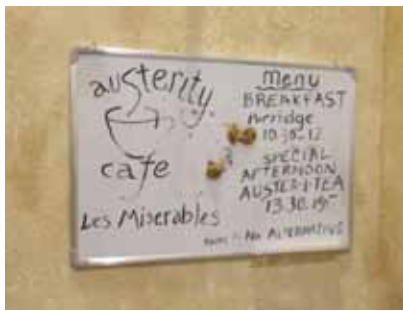 austerity
cafe
Les Miserables
Menu
BREAKFAST
Porridge
10.30-12
SPECIAL
AFTERNOON
AUSTERITEA
13.30
NO ALTERNATIVE